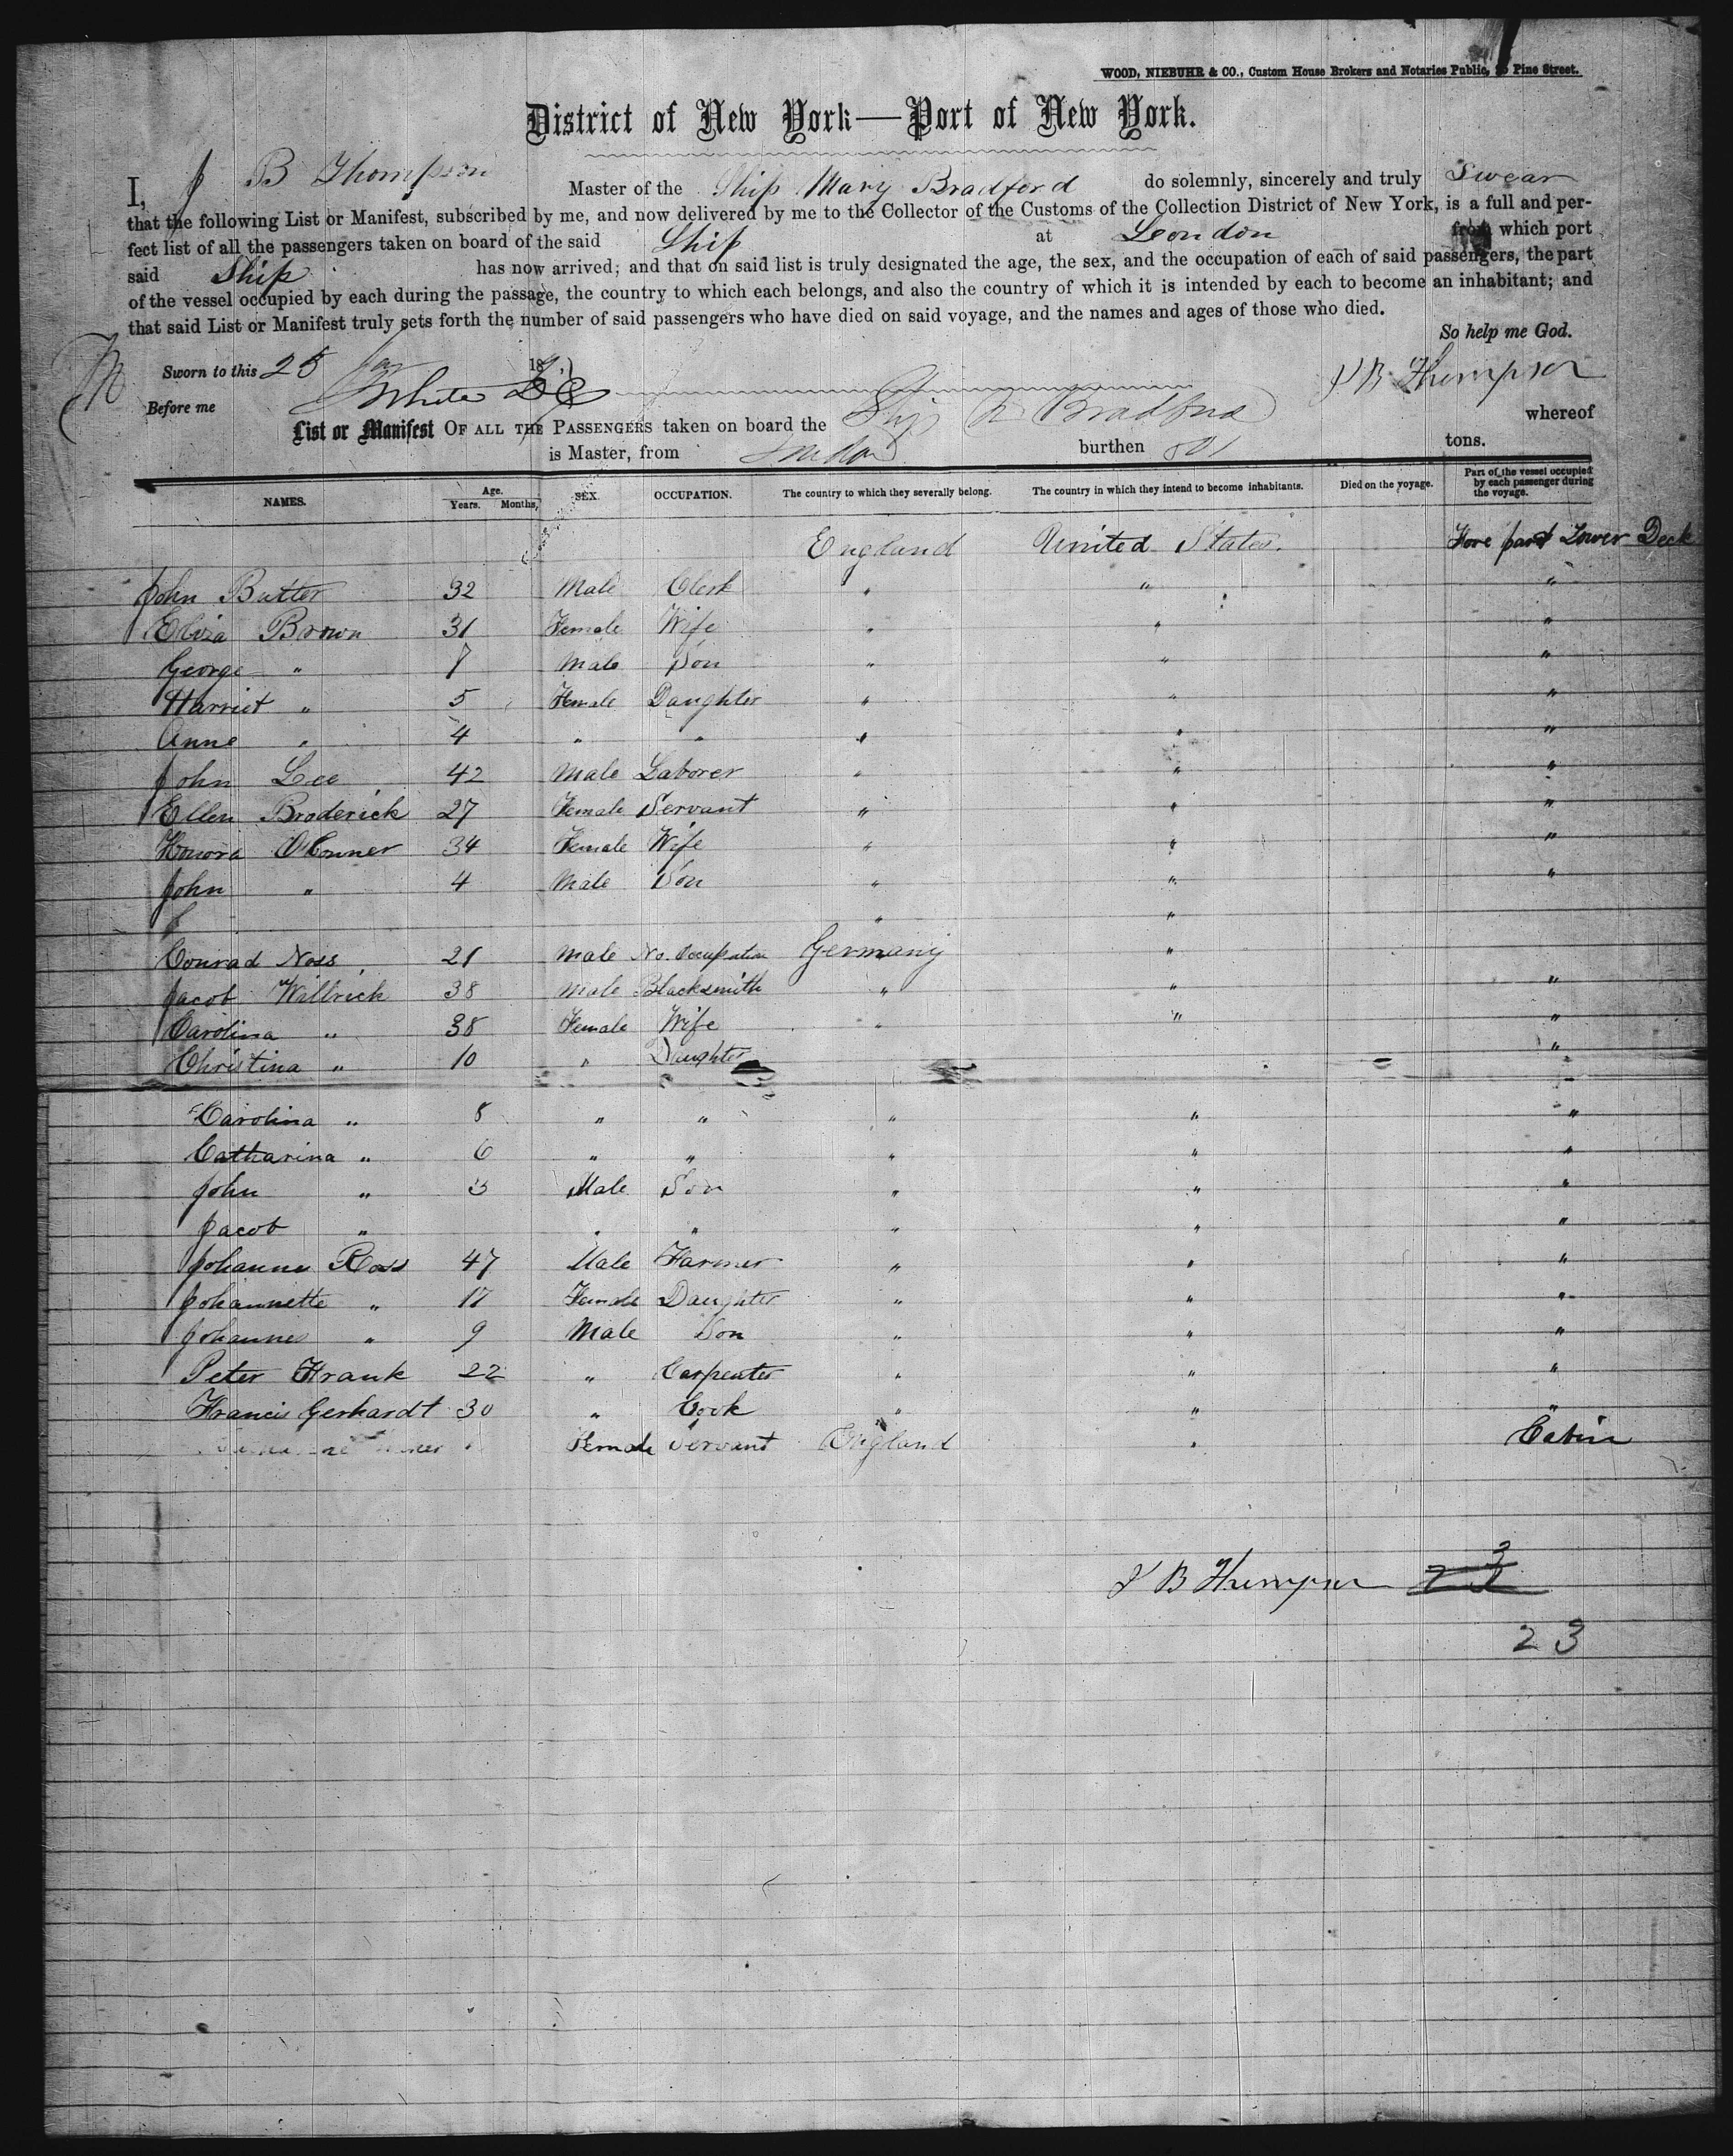 WOOD, NIEBUHR & CO., Custom House Brokers and Notaries Public, Pine Street.
District of New York—Port of New York.
I, J B Thompson Master of the Ship Mary Bradford do solemnly, sincerely and truly Swear
that the following List or Manifest, subscribed by me, and now delivered by me to the Collector of the Customs of the Collection District of New York, is a full and per-
fect list of all the passengers taken on board of the said Ship at London from which port
said Ship has now arrived; and that on said list is truly designated the age, the sex, and the occupation of each of said passengers, the part
of the vessel occupied by each during the passage, the country to which each belongs, and also the country of which it is intended by each to become an inhabitant; and
that said List or Manifest truly sets forth the number of said passengers who have died on said voyage, and the names and ages of those who died.
So help me God.
Sworn to this 25 Jan 18 J B Thompson
Before me White
List or Manifest OF ALL THE PASSENGERS taken on board the Ship M Bradford whereof
is Master, from London burthen tons.
NAMES. Age. Years. Months, SEX. OCCUPATION. The country to which they severally belong. The country in which they intend to become inhabitants. Died on the voyage. Part of the vessel occupied by each passenger during the voyage.
England United States. Fore part Lower Deck
John Butter 32 Male Clerk " " "
Eliza Brown 31 Female Wife " " "
George " 7 Male Son " " "
Harriet " 5 Female Daughter " " "
Anne " 4 " " " " "
John Lee 42 Male Laborer " " "
Ellen Broderick 27 Female Servant " " "
Honora OConner 34 Female Wife " " "
John " 4 Male Son " " "
" "
Conrad Noss 21 Male No Occupation Germany "
Jacob Willrich 38 Male Blacksmith " " "
Carolina " 38 Female Wife " " "
Christina " 10 " Daughter "
Carolina " 8 " " " " "
Catharina " 6 " " " " "
John " 3 Male Son " " "
Jacob " " " " " "
Johannes Ross 47 Male Farmer " " "
Johannette " 17 Female Daughter " " "
Johannes " 9 Male Son " " "
Peter Frank 22 " Carpenter " " "
Francis Gerhardt 30 " Cook " " "
Female Servant England " Cabin
J B Thompson
23